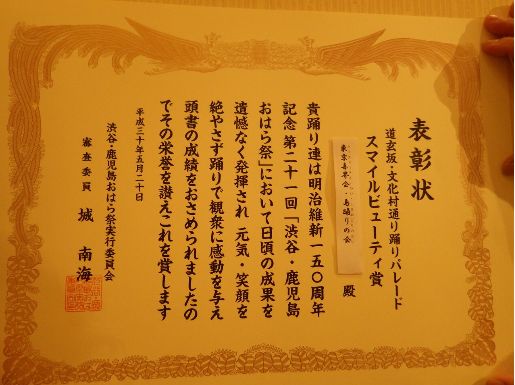 表彰状
道玄坂・文化村通り踊りパレード
スマイルビューティ賞
東京喜界会・島踊りの会
殿
貴踊り連は明治維新一五〇周年
記念 第二十一回「渋谷・鹿児島
おはら祭」において日頃の成果を
遺憾なく発揮され 元気・笑顔を
絶やさず踊りで観衆に感動を与え
頭書の成績をおさめられましたの
でその栄誉を讃えこれを賞します
平成三十年五月二十日
渋谷・鹿児島おはら祭実行委員会
審査委員 城 南海